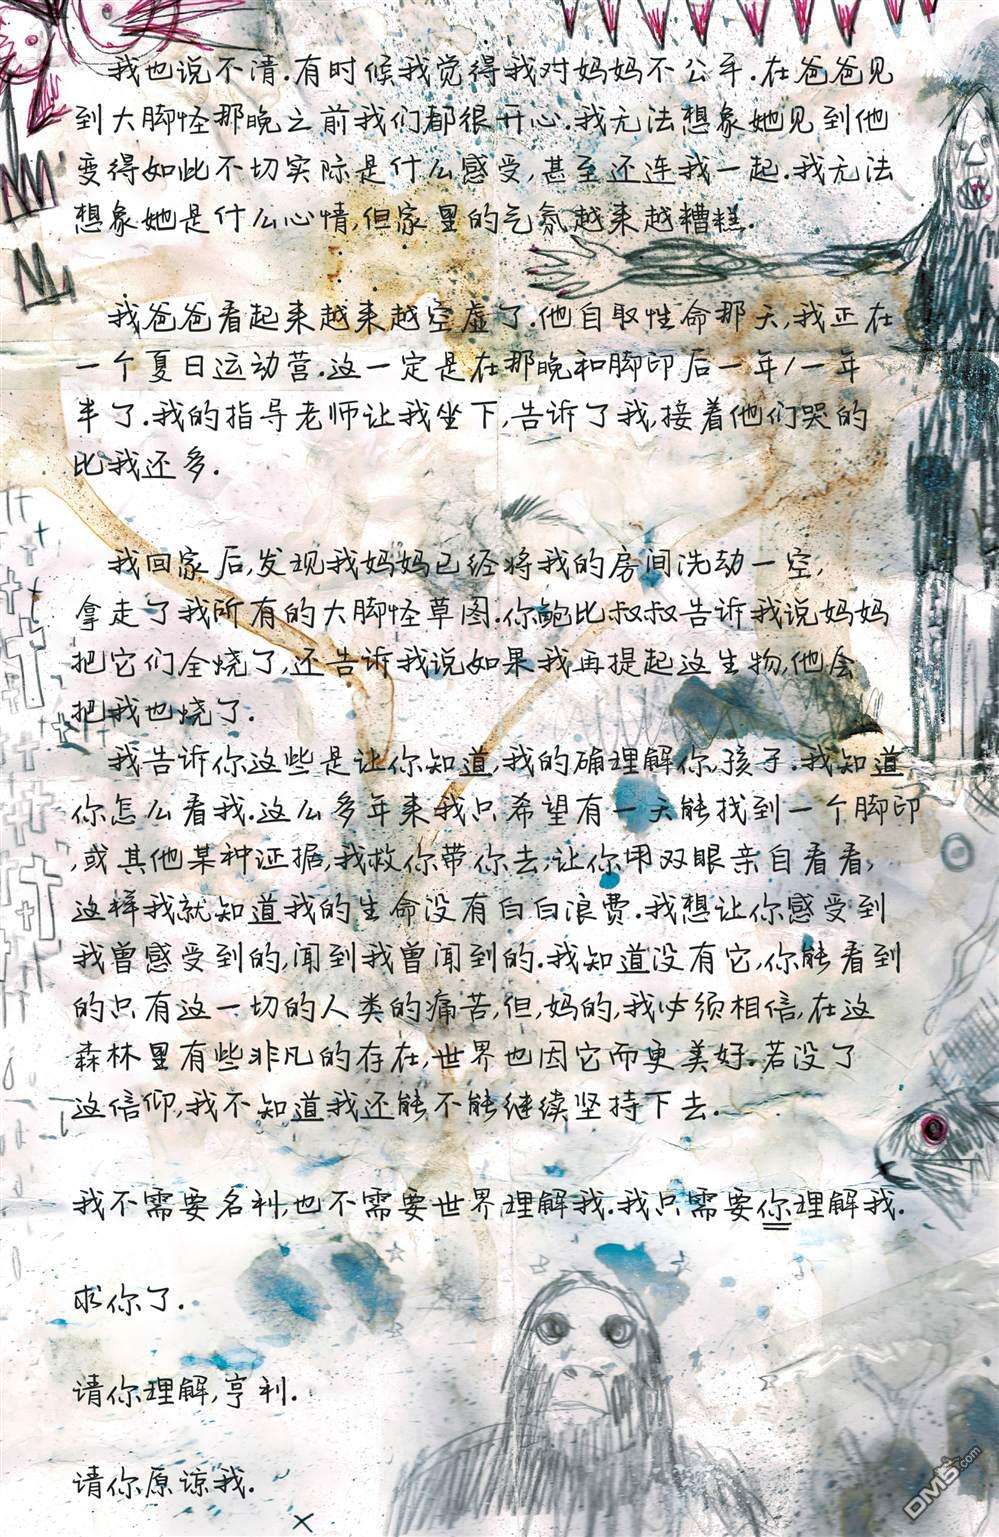 我也说不清.有时候我觉得我对妈妈不公平.在爸爸见
到大脚怪那晚之前我们都很开心.我无法想象她见到他
变得如此不切实际是什么感受,甚至还连我一起.我无法
想象她是什么心情,但家里的气氛越来越糟糕.
我爸爸看起来越来越空虚了.他自取性命那天,我正在
一个夏日运动营.这一定是在那晚和脚印后一年/一年
半了.我的指导老师让我坐下,告诉了我,接着他们哭的
比我还多.
我回家后,发现我妈妈已经将我的房间洗劫一空,
拿走了我所有的大脚怪草图.你鲍比叔叔告诉我说妈妈
把它们全烧了,还告诉我说如果我再提起这生物,他会
把我也烧了.
我告诉你这些是让你知道,我的确理解你,孩子.我知道
你怎么看我.这么多年来我只希望有一天能找到一个脚印
,或其他某种证据,我救你带你去,让你用双眼亲自看看,
这样我就知道我的生命没有白白浪费.我想让你感受到
我曾感受到的,闻到我曾闻到的.我知道没有它,你能看到
的只有这一切的人类的痛苦,但,妈的,我必须相信,在这
森林里有些非凡的存在,世界也因它而更美好.若没了
这信仰,我不知道我还能不能继续坚持下去.
我不需要名利,也不需要世界理解我.我只需要你理解我.
求你了.
请你理解,亨利.
请你原谅我.
x
DM5.com